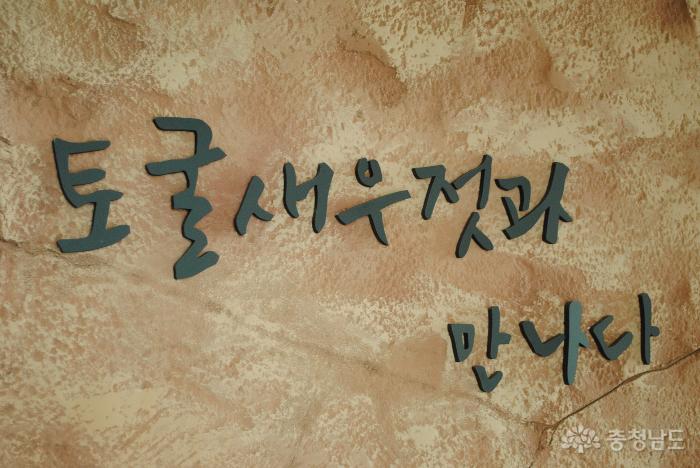 토굴새우젓과
만나다
충청남도